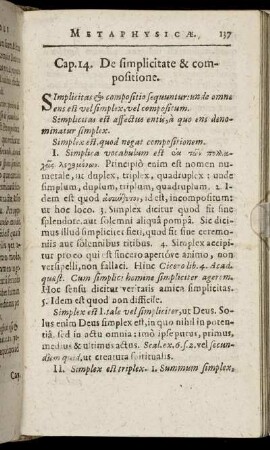 METAPHYSICÆ. 137
Cap. 14. De simplicitate & com-
positione.
SImplicitas & compositio sequuntur: unde omne
ens est vel simplex, vel compositum.
Simplicitas est affectus entis, à quo ens deno-
minatur simplex.
Simplex est, quod negat compositionem.
I. Simplica vocabulum est ἐκ τῶν πολλα-
χῶς λεγομένων. Principiò enim est nomen nu-
merale, ut duplex, triplex, quadruplex: unde
simplum, duplum, triplum, quadruplum. 2. I-
dem est quod id est, incompositum:
ut hoc loco. 3. Simplex dicitur quod fit sine
splendore, aut solemni aliquâ pompâ. Sic dici-
mus illud simpliciter fieri, quod fit sine ceremo-
niis aut solennibus ritibus. 4. Simplex accipi-
tur pro eo qui est sincero apertóve animo, non
versipelli, non fallaci. Hinc Cicero lib. 4. Acad.
quæst. Cum simplici homine simpliciter agerem.
Hoc sensu dicitur veritatis amica simplicitas.
5. Idem est quod non difficile.
Simplex est 1. tale vel simpliciter, ut Deus. So-
lus enim Deus simplex est, in quo nihil in poten-
tiâ, sed in actu omnia: imò ipse purus, primus,
medius & ultimus actus. Scal. ex. 6. s. 2. vel secun-
dum quid, ut creatura spiritualis.
II. Simplex est triplex. 1. Summum simplex,
Cap.